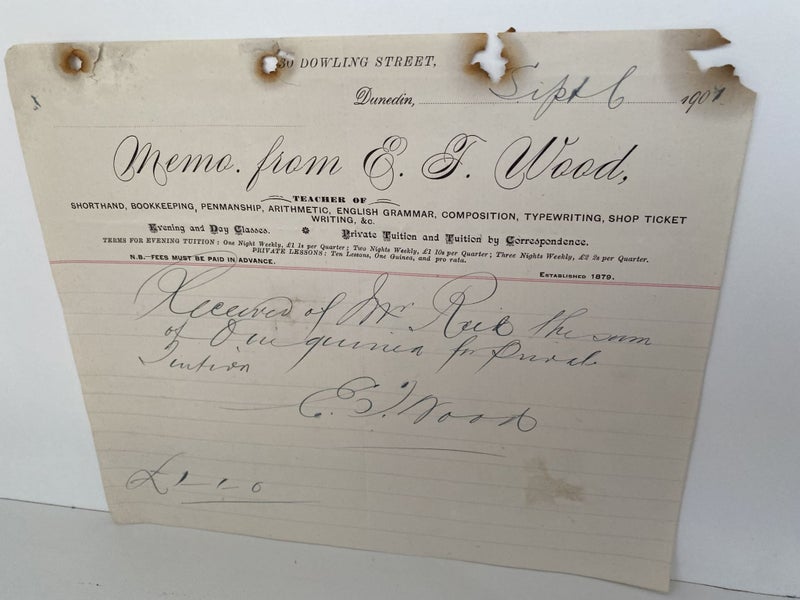 30 DOWLING STREET,
Dunedin, Sept 6 1901
Memo. from E. F. Wood,
TEACHER OF
SHORTHAND, BOOKKEEPING, PENMANSHIP, ARITHMETIC, ENGLISH GRAMMAR, COMPOSITION, TYPEWRITING, SHOP TICKET
WRITING, &c.
Evening and Day Classes. Private Tuition and Tuition by Correspondence.
TERMS FOR EVENING TUITION: One Night Weekly, £1 1s per Quarter; Two Nights Weekly, £1 10s per Quarter; Three Nights Weekly, £2 2s per Quarter.
PRIVATE LESSONS: Ten Lessons, One Guinea, and pro rata.
N.B.—FEES MUST BE PAID IN ADVANCE.
ESTABLISHED 1879.
Received of Mr Reid the sum
of One guinea for Private
Tuition
E. F. Wood
£1-1-0